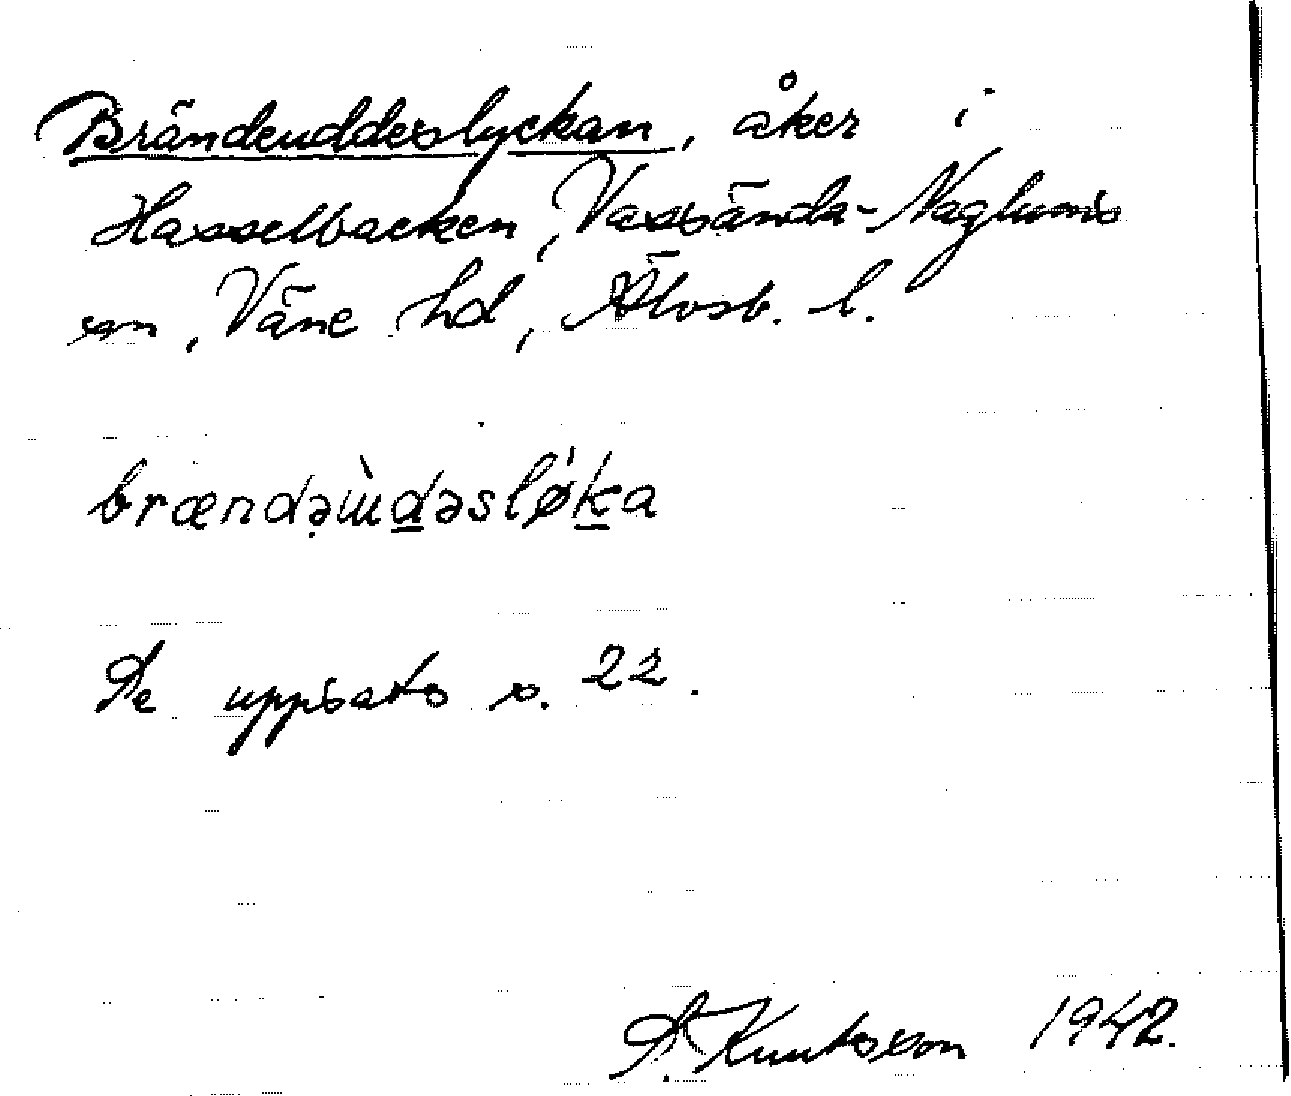 Brändeuddeslyckan, åker i
Hasselbacken, Vassända-Naglums
sn, Väne hd, Älvsb. l.
brændəɯ̀dəsløka
Se uppsats s. 22.
S. Knutsson 1942.